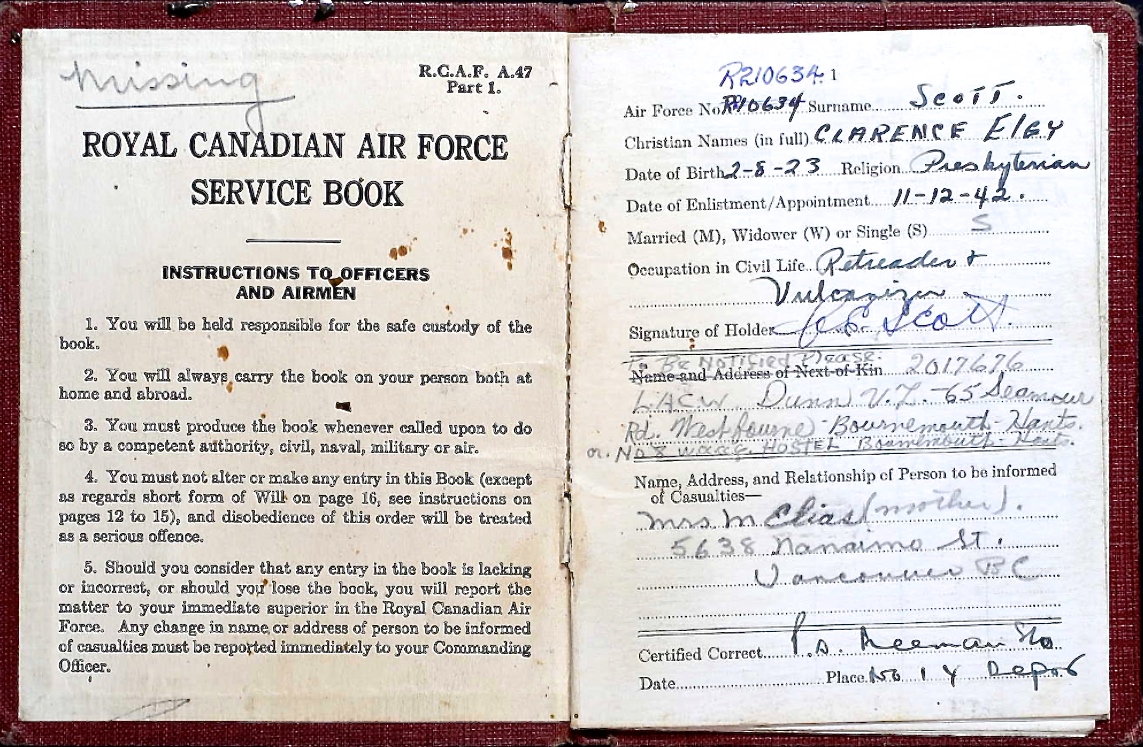 Missing
R.C.A.F. A.47
Part 1.
ROYAL CANADIAN AIR FORCE
SERVICE BOOK
INSTRUCTIONS TO OFFICERS
AND AIRMEN
1. You will be held responsible for the safe custody of the
book.
2. You will always carry the book on your person both at
home and abroad.
3. You must produce the book whenever called upon to do
so by a competent authority, civil, naval, military or air.
4. You must not alter or make any entry in this Book (except
as regards short form of Will on page 16, see instructions on
pages 12 to 15), and disobedience of this order will be treated
as a serious offence.
5. Should you consider that any entry in the book is lacking
or incorrect, or should you lose the book, you will report the
matter to your immediate superior in the Royal Canadian Air
Force. Any change in name or address of person to be informed
of casualties must be reported immediately to your Commanding
Officer.
R210634. 1
Air Force No. R210634 Surname SCOTT.
Christian Names (in full) CLARENCE Elgy
Date of Birth 2-8-23 Religion Presbyterian
Date of Enlistment/Appointment 11-12-42.
Married (M), Widower (W) or Single (S) S
Occupation in Civil Life Retreader &
Vulcanizer
Signature of Holder C.E. Scott.
To Be Notified Please:
Name and Address of Next-of-Kin 2017676
LACW Dunn V.L. - 65 Seamour
Rd. Westbourne - Bournemouth - Hants.
or. No 8 W.A.A.F. HOSTEL Bournemouth - Hants.
Name, Address, and Relationship of Person to be informed
of Casualties—
Mrs M Elias (mother).
5638 Nanaimo St.
Vancouver BC
Certified Correct
Date Place No 1 Y Depot